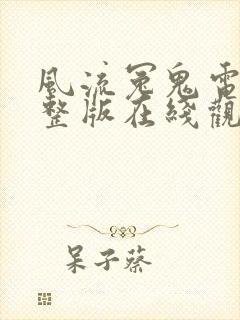 風流冤鬼電
整版在綫觀
呆子蔡